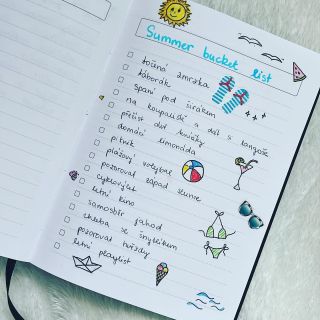 Summer bucket list
točená zmrzka
táborák
spaní pod širákem
na koupaliště a dát s langoše
přečíst dvě knížky
domácí limonáda
piknik
plážový volejbal
pozorovat západ slunce
cyklovýlet
letní kino
samosběr jahod
chleba se šnytlíkem
pozorovat hvězdy
letní playlist